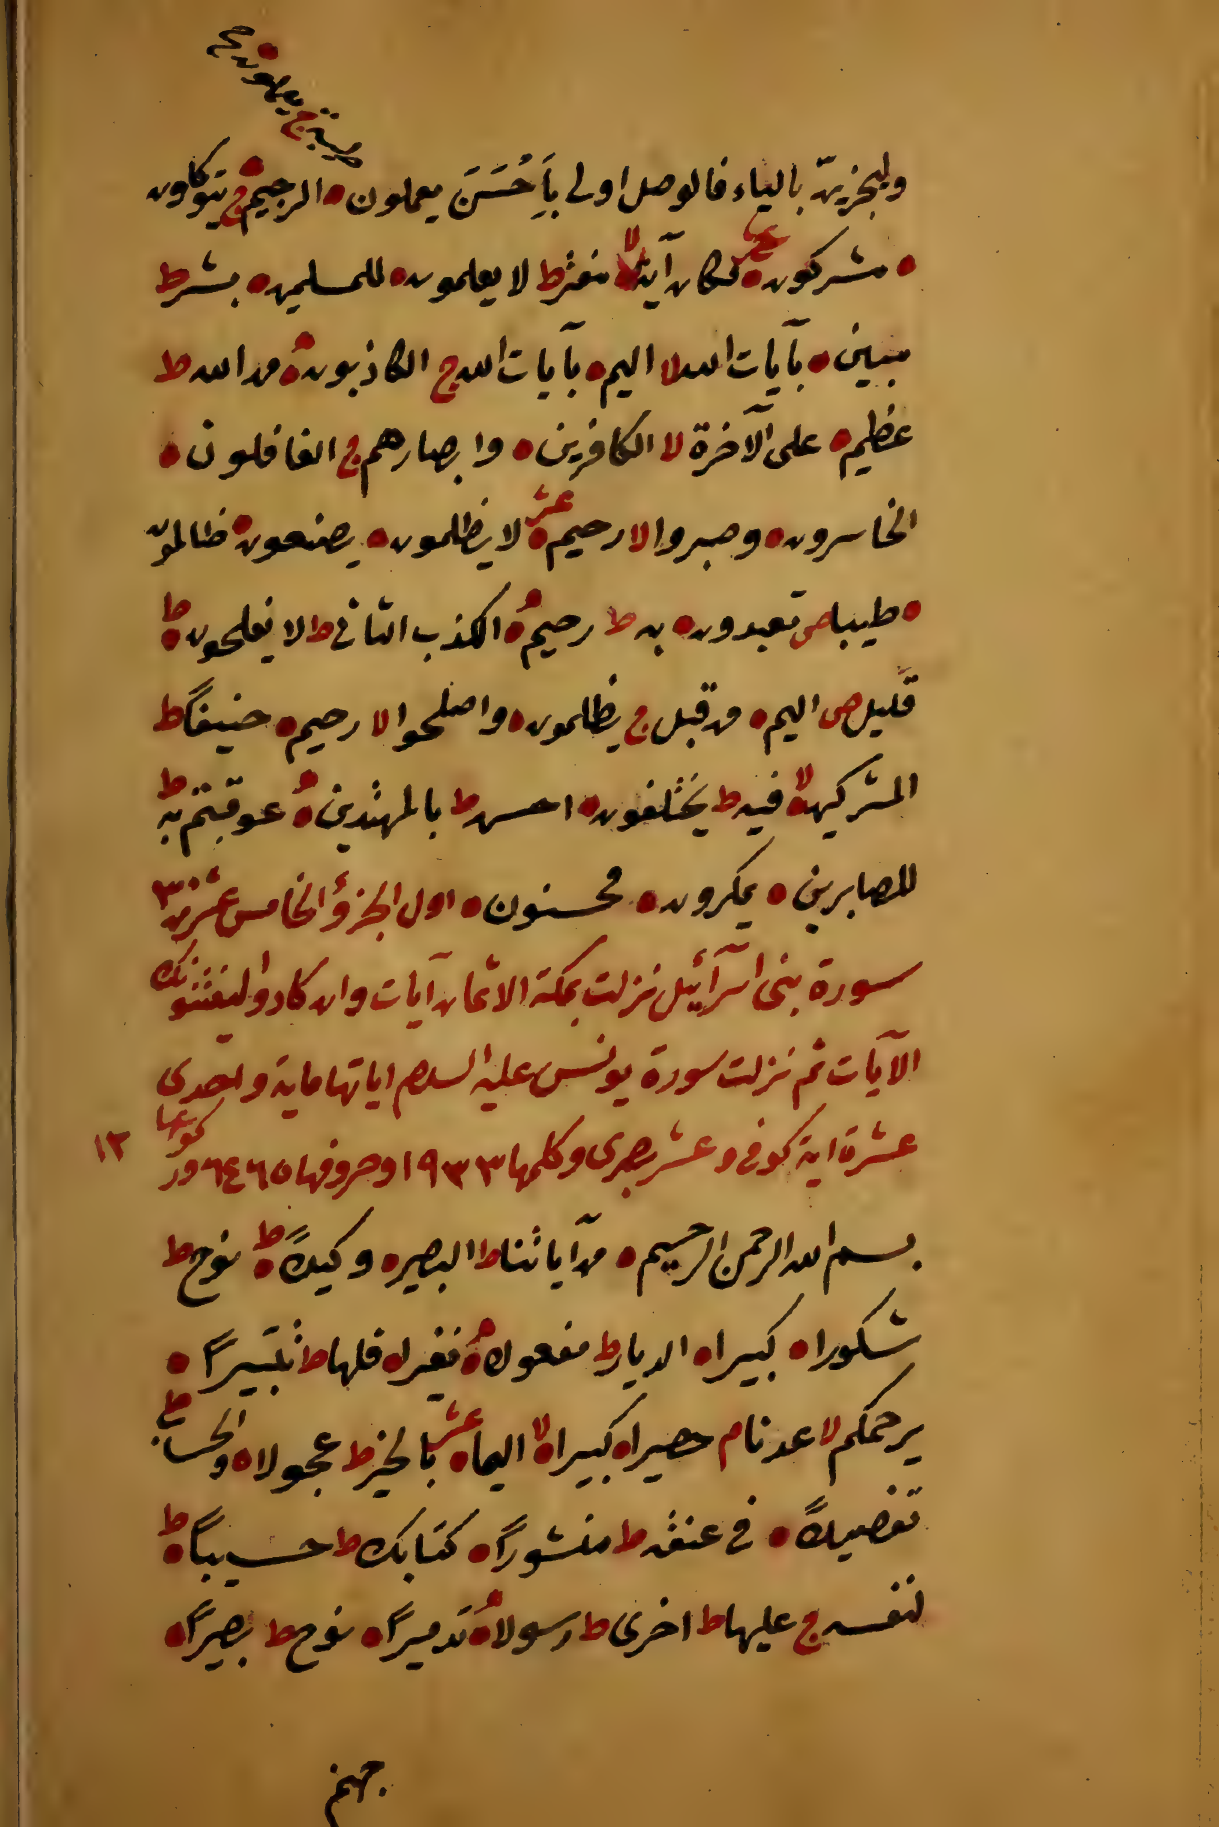 وليجزينّ بالياء فالوصل اولى بِاَحْسَنَ يعملون ۰ الرجيم ۰ ج يتوكلون
۰ مشركون ۰ عشر مكان آية لا مفتر ط لا يعلمون ۰ للمسلمين ۰ بشر ط
مبين ۰ بآيات الله لا اليم ۰ بآيات الله ج الكاذبون ۰ من الله ط
عظيم ۰ على الآخرة لا الكافرين ۰ وابصارهم ج الغافلون ۰
الخاسرون ۰ وصبروا لا رحيم ۰ عشر لا يظلمون ۰ يصنعون ۰ ظالمون
۰ طيبا ص تعبدون ۰ به ط رحيم ۰ الكذب الثاني ط لا يفلحون ۰ ط
قليل ص اليم ۰ من قبل ج يظلمون ۰ واصلحوا لا رحيم ۰ حنيفاً ط
المشركين ۰ لا فيه ط يختلفون ۰ احسن ط بالمهتدين ۰ عوقبتم به ط
للصابرين ۰ يمكرون ۰ محسنون ۰ اول الجزؤ الخامس عشر
سورة بنى اسرآئيل نزلت بمكة الا ثمان آيات وان كادوا ليفتنونك
الآيات ثم نزلت سورة يونس عليه السلام اياتها ماية واحدى
عشرة اية كوفى وعشر بصرى وكلمها ١٩٣٣ وحروفها ٦٤٦٥ وركوعها ١٢
بسم الله الرحمن الرحيم ۰ من آياتنا ط البصير ۰ وكيلاً ۰ ط نوح ط
شكورا ۰ كبيرا ۰ الديار ط مفعولا ۰ نفيرا ۰ فلها ط تتبيراً ۰
يرحمكم لا عدنا م حصيرا ۰ كبيرا ۰ لا اليما ۰ عشر بالخير ط عجولا ۰ والحساب ط
تفصيلاً ۰ فى عنقه ط منشوراً ۰ كتابك ط حسيباً ۰ ط
لنفسه ج عليها ط اخرى ط رسولا ۰ تدميراً ۰ نوح ط بصيراً ۰
جهنم